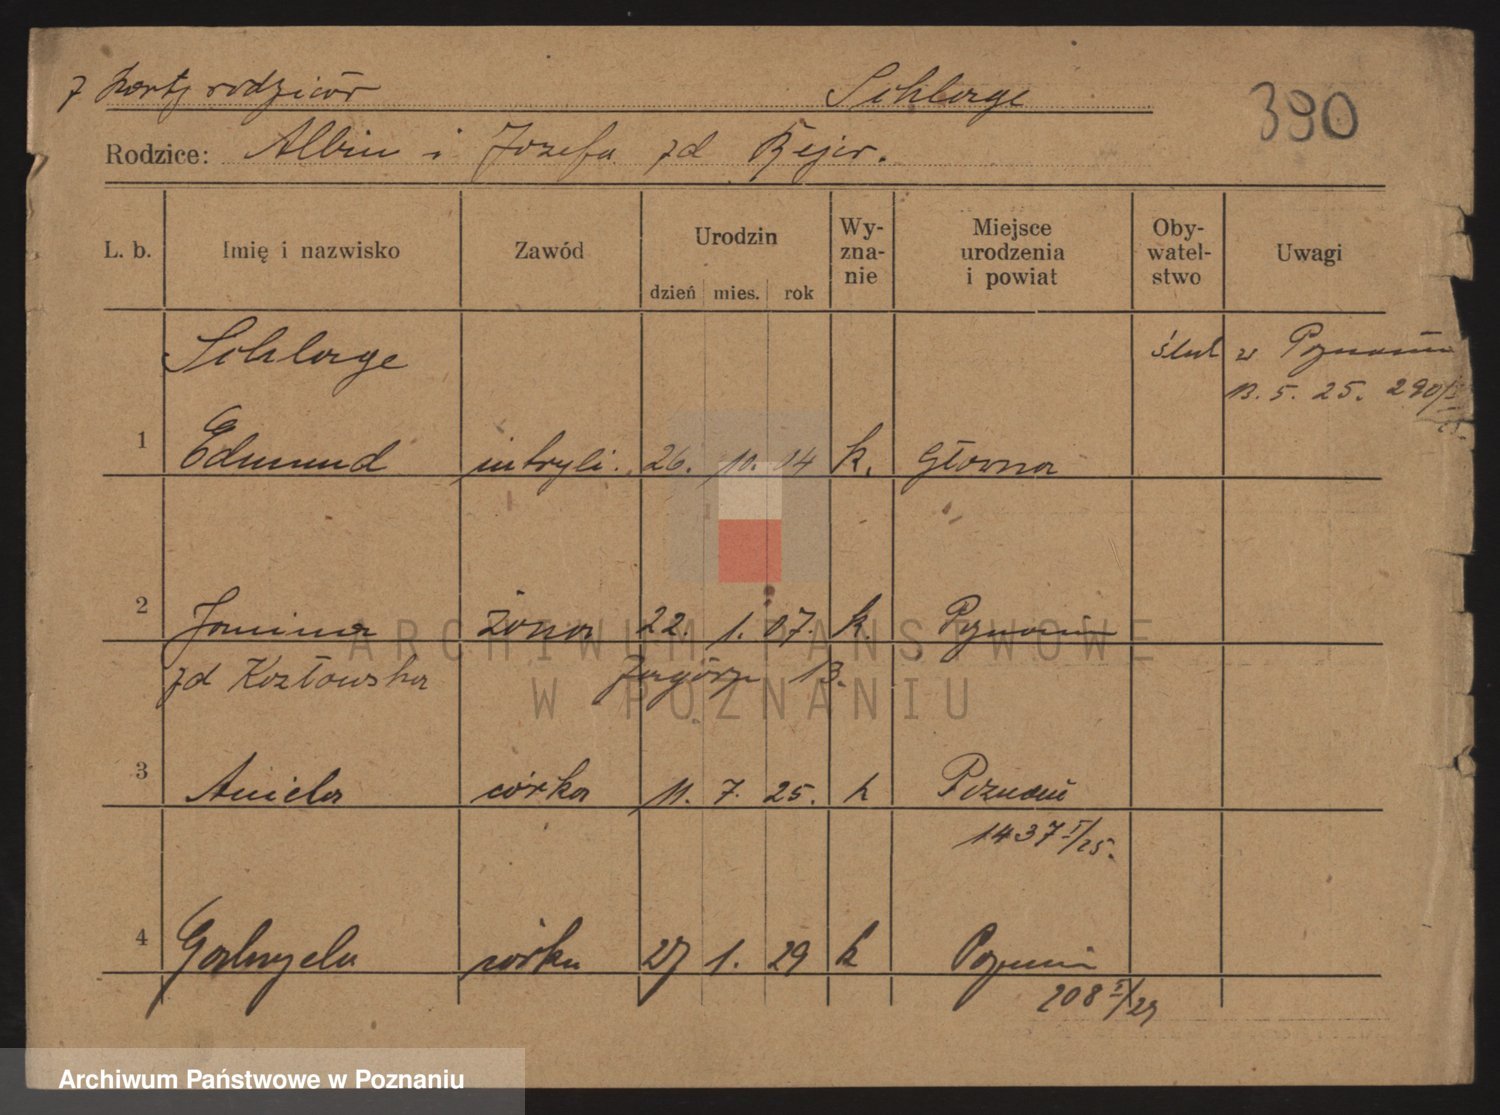 z karty rodziców Schlage
390
Rodzice: Albin i Józefa zd Bejer.
L. b. Imię i nazwisko Zawód Urodzin Wy-zna-nie Miejsce urodzenia i powiat Oby-watel-stwo Uwagi
dzień mies. rok
Schlage ślub w Poznaniu
13. 5. 25. 290/
1 Edmund 26. 10. 14 k. Główna
2 Janina żona 22. 1. 07. k. Poznaniu
zd Kozłowska Zagórze 13.
3 Aniela córka 11. 7. 25. k Poznań
1437 I/25.
4 Gabryela córka 27 1. 29 k Poznań
208 I/29
ARCHIWUM PAŃSTWOWE
W POZNANIU
Archiwum Państwowe w Poznaniu